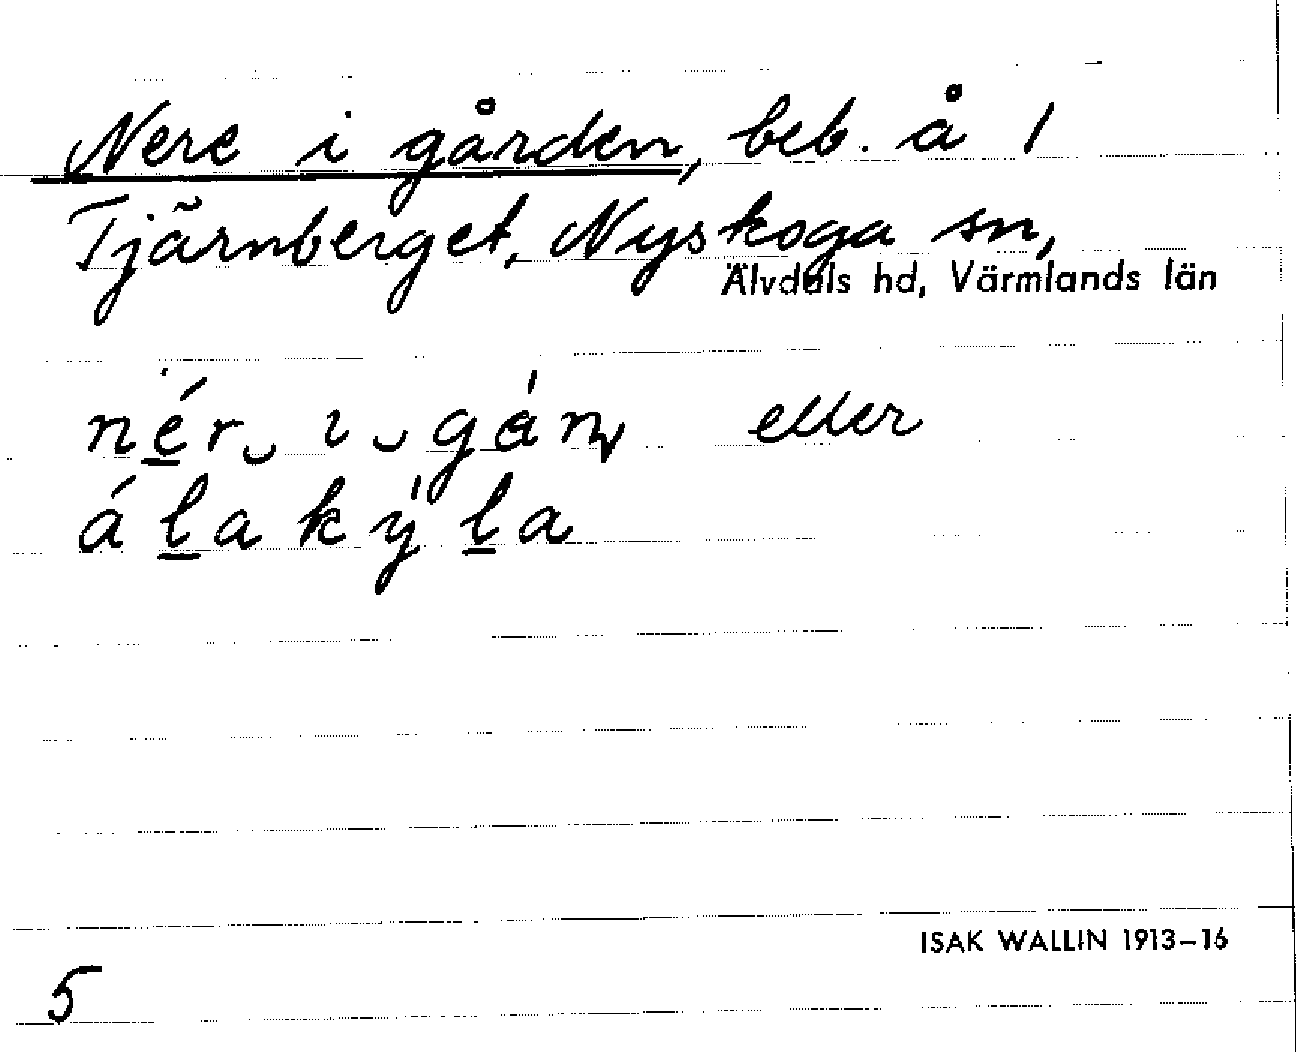 Nere i gården, beb. å 1
Tjärnberget, Nyskoga sn,
Älvdals hd, Värmlands län
nér‿ ɩ‿gán eller
álakýla
ISAK WALLIN 1913–16
5